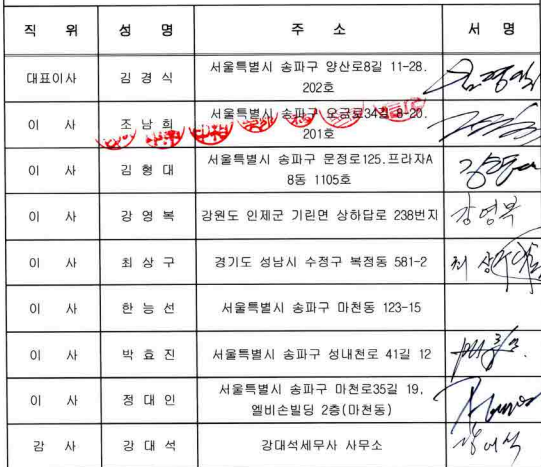 직 위 성 명 주 소 서 명
대표이사 김 경 식 서울특별시 송파구 양산로8길 11-28.
202호
이 사 조 남 희 서울특별시 송파구 오금로34길 8-20.
201호
이 사 김 형 대 서울특별시 송파구 문정로125.프라자A
8동 1105호
이 사 강 영 복 강원도 인제군 기린면 상하답로 238번지 강영복
이 사 최 상 구 경기도 성남시 수정구 복정동 581-2 최상구
이 사 한 능 선 서울특별시 송파구 마천동 123-15
이 사 박 효 진 서울특별시 송파구 성내천로 41길 12
이 사 정 대 인 서울특별시 송파구 마천로35길 19.
엘비손빌딩 2층(마천동)
감 사 강 대 석 강대석세무사 사무소